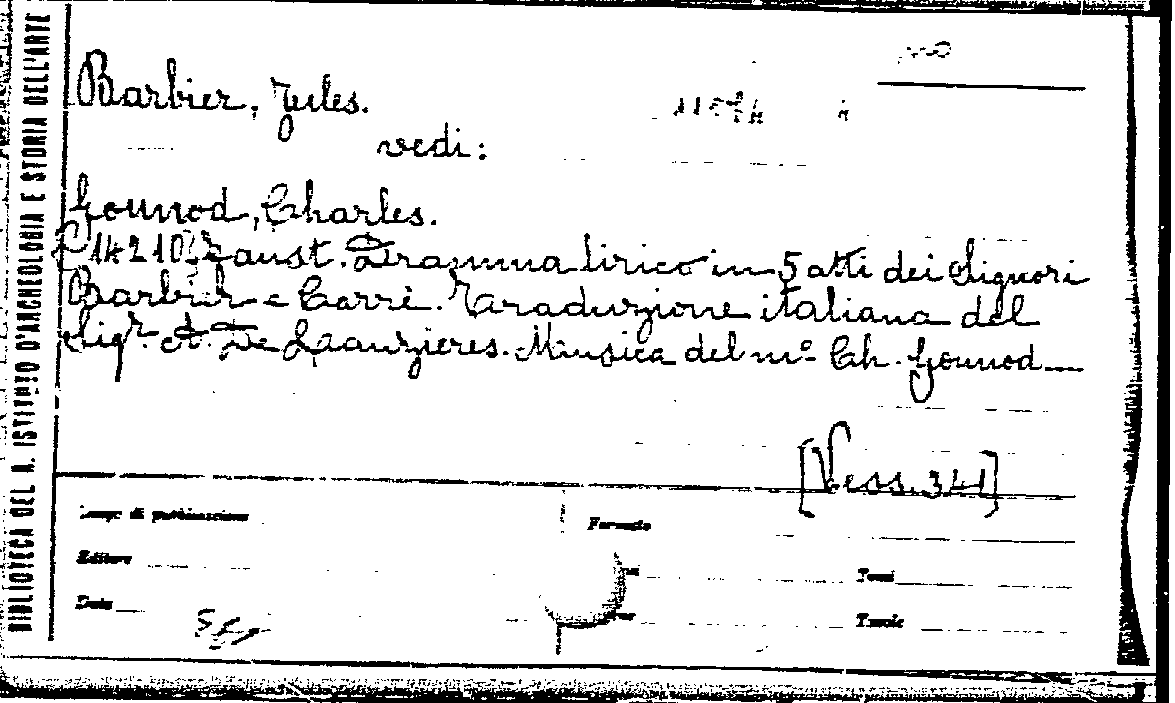 BIBLIOTECA DEL R. ISTITUTO D'ARCHEOLOGIA E STORIA DELL'ARTE
Barbier, Jules.
vedi:
Gounod, Charles.
Faust. Dramma lirico in 5 atti dei Signori
Barbier e Carrè. Traduzione italiana del
Sigr A. De Lauzieres. Musica del mo Ch. Gounod
[Vess. 341]
Luogo di pubblicazione
Formato
Editore
Tomi
Data
Tavole